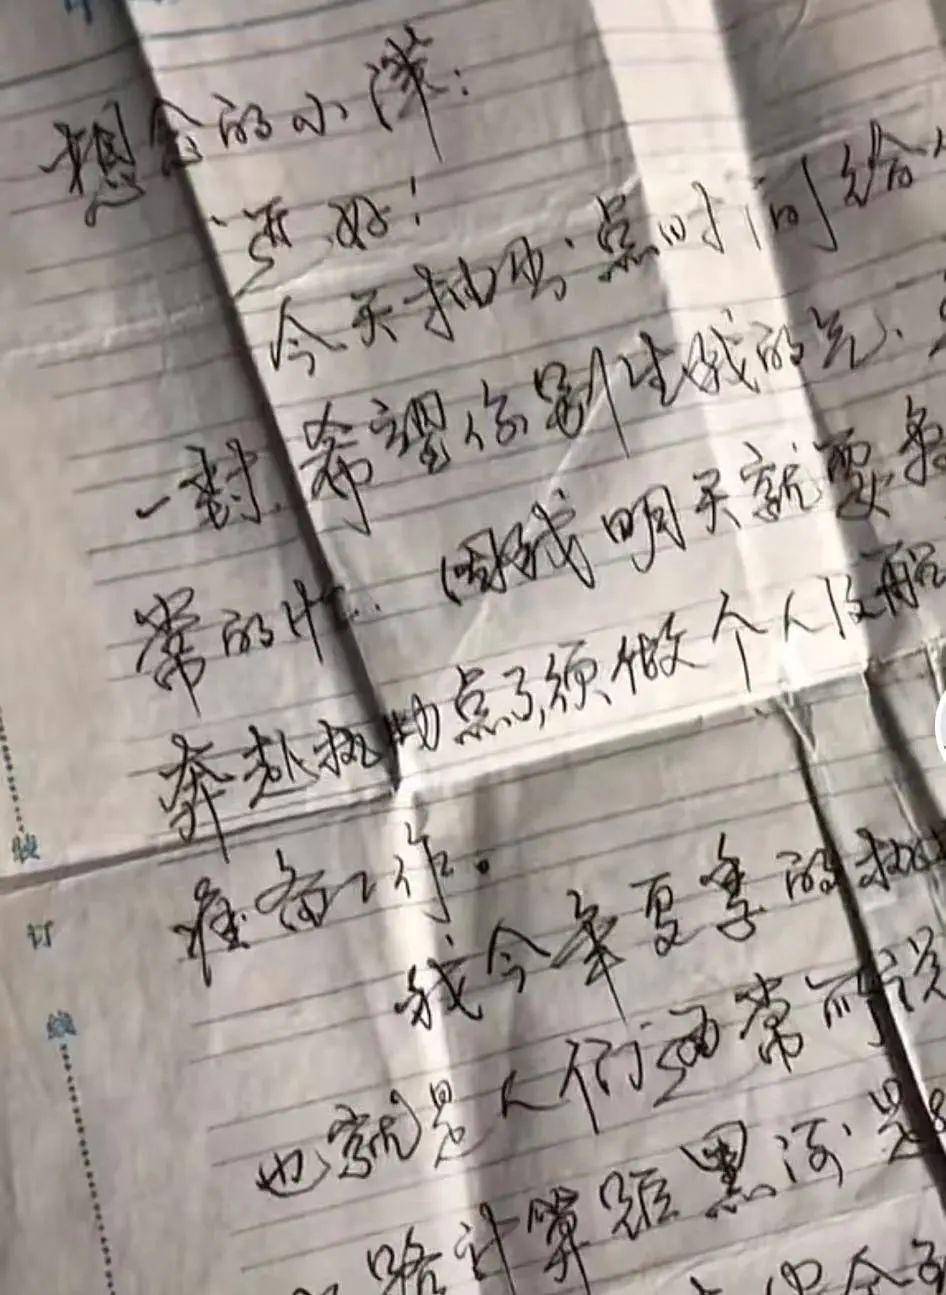 想念的小萍：
还好！
今天抽出点时间给
一封，希望你别生我的气，
常的忙．因我明天就要
奔赴执勤点了，须做个人
准备工作。
我今年夏季的执
也就是人们通常所说
路计算距黑河
装
订
线